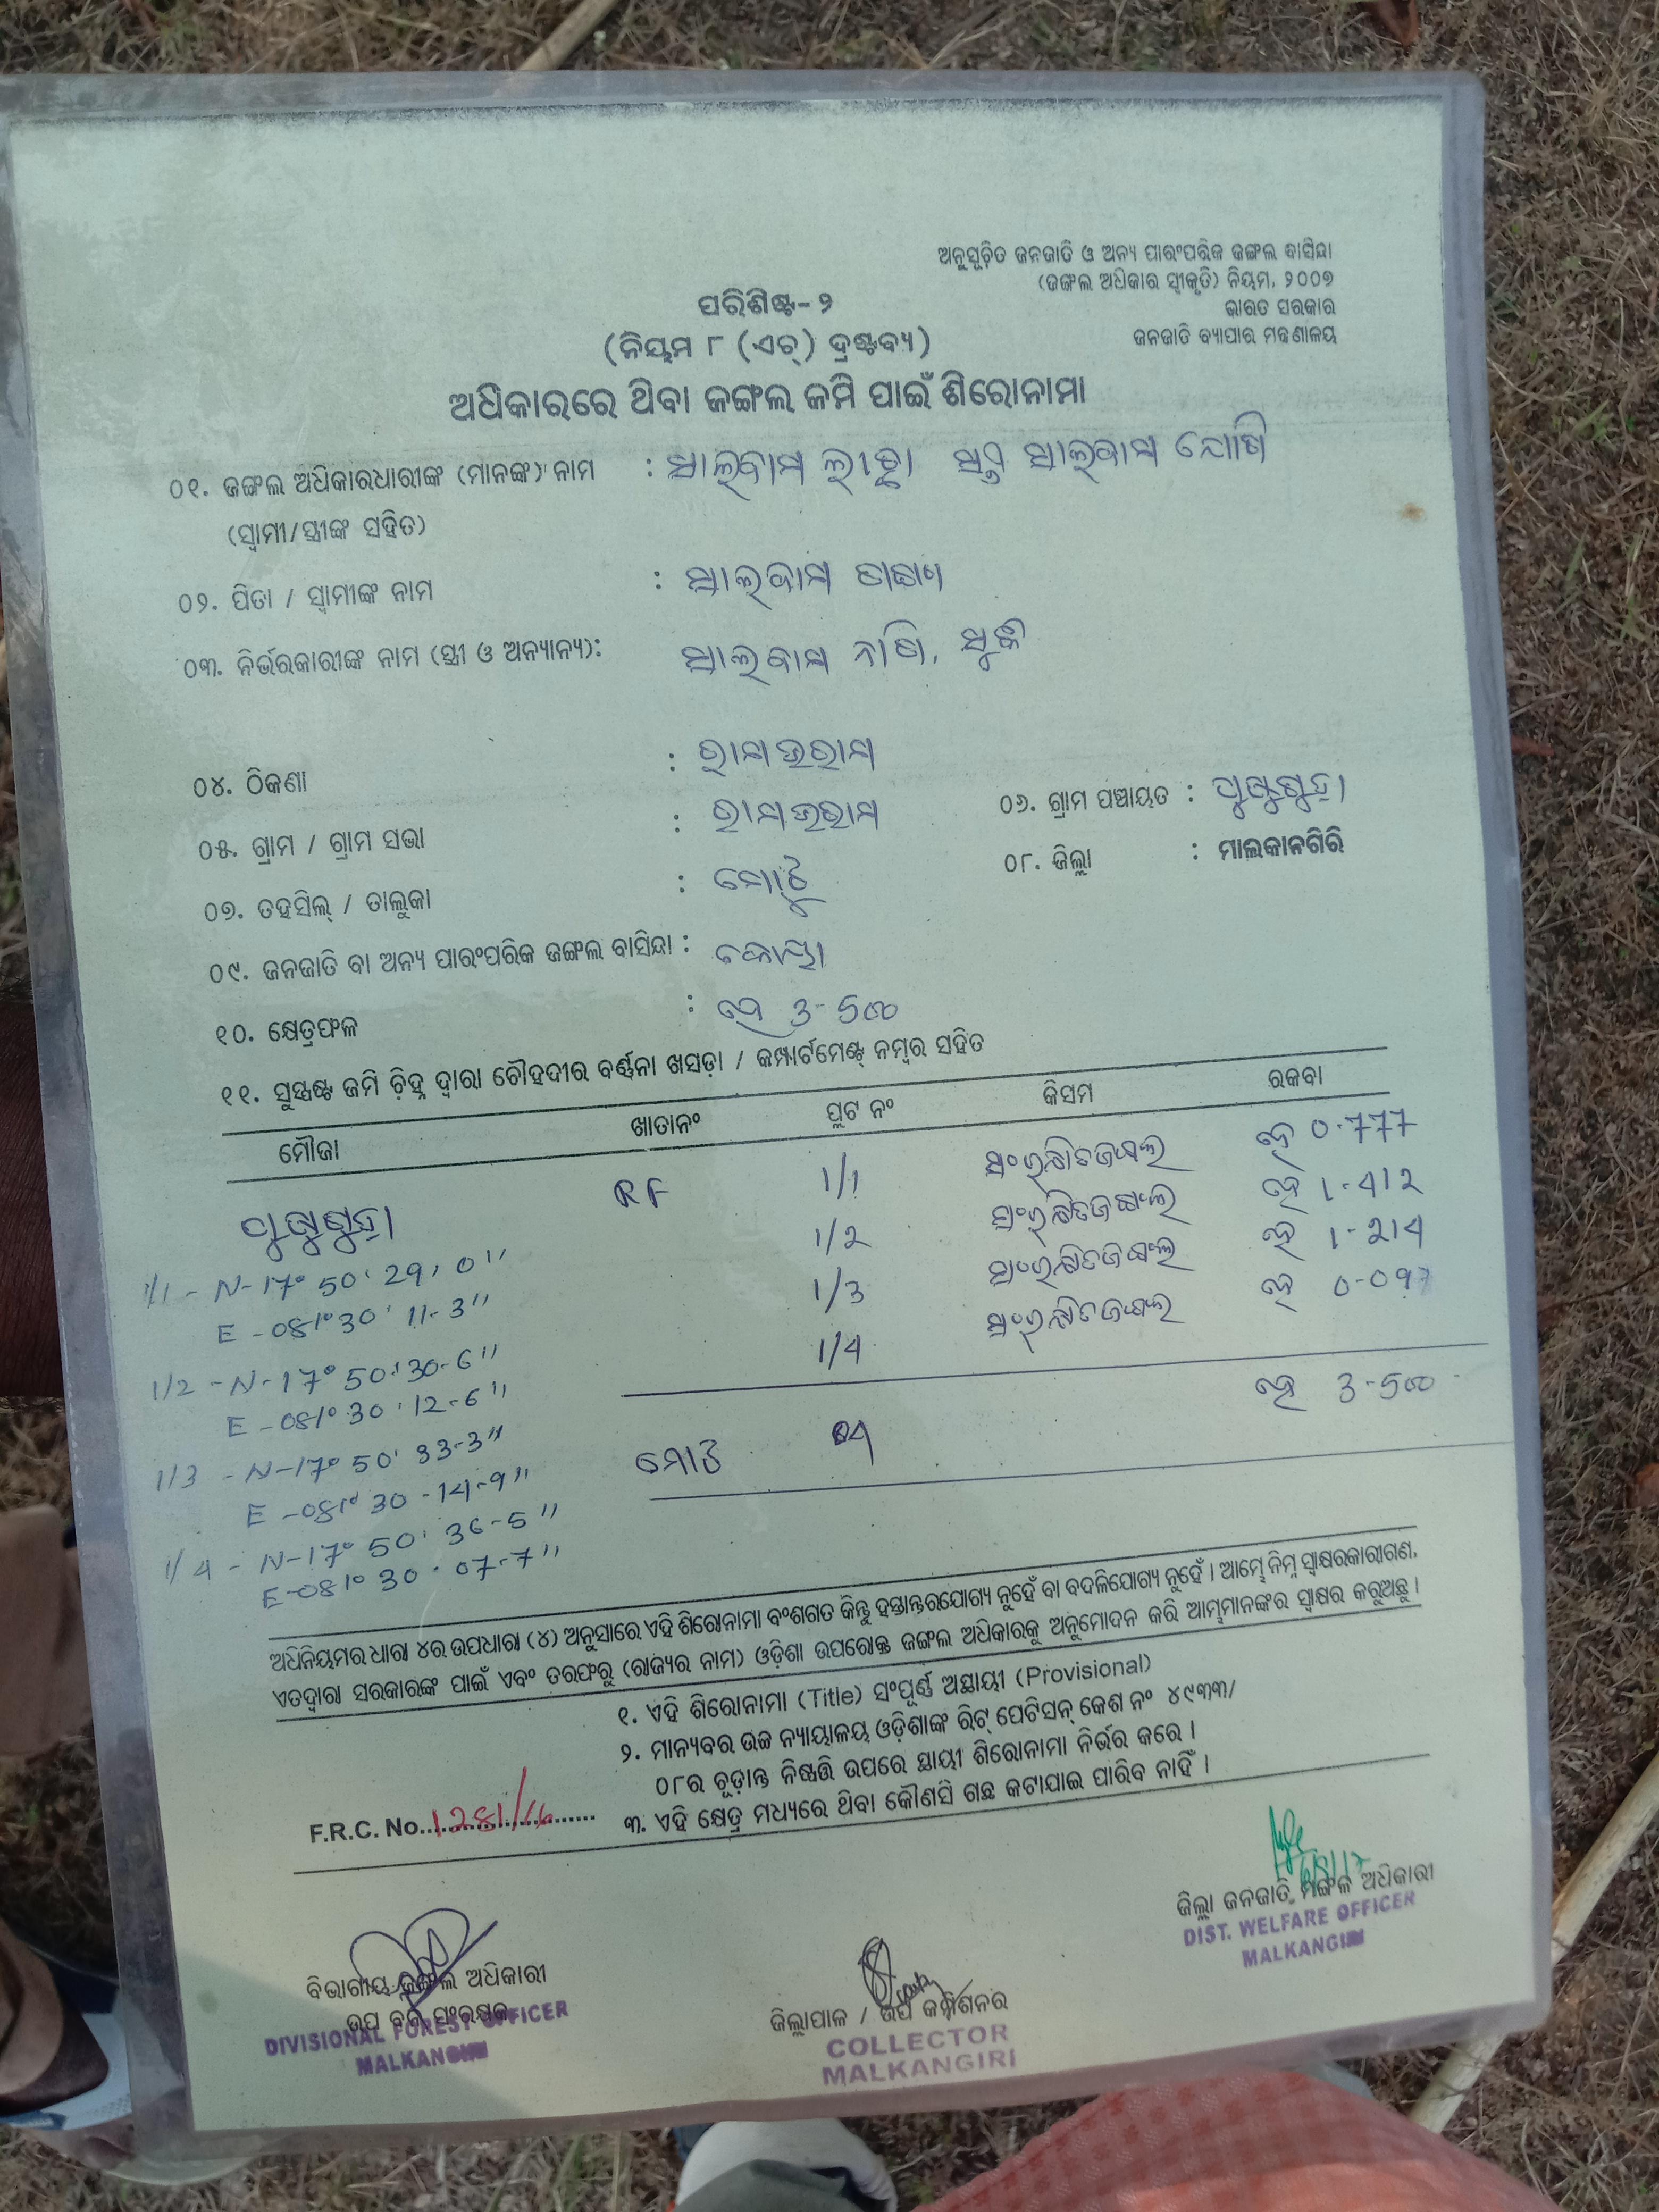 ଅନୁସୂଚିତ ଜନଜାତି ଓ ଅନ୍ୟ ପାରଂପରିକ ଜଙ୍ଗଲ ବାସିନ୍ଦା
(ଜଙ୍ଗଲ ଅଧିକାର ସ୍ୱୀକୃତି) ନିୟମ, ୨୦୦୭
ଭାରତ ସରକାର
ଜନଜାତି ବ୍ୟାପାର ମନ୍ତ୍ରଣାଳୟ
ପରିଶିଷ୍ଟ-୨
(ନିୟମ ୮ (ଏଚ୍) ଦ୍ରଷ୍ଟବ୍ୟ)
ଅଧିକାରରେ ଥିବା ଜଙ୍ଗଲ ଜମି ପାଇଁ ଶିରୋନାମା
୦୧. ଜଙ୍ଗଲ ଅଧିକାରଧାରୀଙ୍କ (ମାନଙ୍କ) ନାମ :
(ସ୍ୱାମୀ/ସ୍ତ୍ରୀଙ୍କ ସହିତ)
୦୨. ପିତା / ସ୍ୱାମୀଙ୍କ ନାମ :
୦୩. ନିର୍ଭରକାରୀଙ୍କ ନାମ (ସ୍ତ୍ରୀ ଓ ଅନ୍ୟାନ୍ୟ):
୦୪. ଠିକଣା :
୦୫. ଗ୍ରାମ / ଗ୍ରାମ ସଭା : ୦୬. ଗ୍ରାମ ପଞ୍ଚାୟତ :
୦୭. ତହସିଲ୍ / ତାଲୁକା : ମୋଟୁ ୦୮. ଜିଲ୍ଲା : ମାଲକାନଗିରି
୦୯. ଜନଜାତି ବା ଅନ୍ୟ ପାରଂପରିକ ଜଙ୍ଗଲ ବାସିନ୍ଦା : କୋୟା
୧୦. କ୍ଷେତ୍ରଫଳ : ହେ 3-500
୧୧. ସୁସ୍ପଷ୍ଟ ଜମି ଚିହ୍ନ ଦ୍ୱାରା ଚୌହଦୀର ବର୍ଣ୍ଣନା ଖସଡ଼ା / କମ୍ପାର୍ଟମେଣ୍ଟ ନମ୍ବର ସହିତ
ମୌଜା ଖାତାନଂ ପ୍ଲଟ ନଂ କିସମ ରକବା
RF 1/1 ସଂରକ୍ଷିତ ଜଙ୍ଗଲ ହେ 0.777
1/2 ସଂରକ୍ଷିତ ଜଙ୍ଗଲ ହେ 1-412
1/3 ସଂରକ୍ଷିତ ଜଙ୍ଗଲ ହେ 1-214
1/4 ସଂରକ୍ଷିତ ଜଙ୍ଗଲ ହେ 0-097
1/1 - N-17° 50' 29, 0"
E -081° 30' 11-3"
1/2 - N-17° 50' 30-6"
E -081° 30' 12-6"
1/3 - N-17° 50' 33-3"
E -081° 30 -14-9"
1/4 - N-17° 50' 36-5"
E-081° 30 - 07-7"
ମୋଟ 04 ହେ 3-500
ଅଧିନିୟମର ଧାରା ୪ର ଉପଧାରା (୪) ଅନୁସାରେ ଏହି ଶିରୋନାମା ବଂଶଗତ କିନ୍ତୁ ହସ୍ତାନ୍ତରଯୋଗ୍ୟ ନୁହେଁ ବା ବଦଳିଯୋଗ୍ୟ ନୁହେଁ । ଆମ୍ଭେ ନିମ୍ନ ସ୍ୱାକ୍ଷରକାରୀଗଣ,
ଏତଦ୍ୱାରା ସରକାରଙ୍କ ପାଇଁ ଏବଂ ତରଫରୁ (ରାଜ୍ୟର ନାମ) ଓଡ଼ିଶା ଉପରୋକ୍ତ ଜଙ୍ଗଲ ଅଧିକାରକୁ ଅନୁମୋଦନ କରି ଆମ୍ଭମାନଙ୍କର ସ୍ୱାକ୍ଷର କରୁଅଛୁ ।
୧. ଏହି ଶିରୋନାମା (Title) ସଂପୂର୍ଣ୍ଣ ଅସ୍ଥାୟୀ (Provisional)
୨. ମାନ୍ୟବର ଉଚ୍ଚ ନ୍ୟାୟାଳୟ ଓଡ଼ିଶାଙ୍କ ରିଟ୍ ପେଟିସନ୍ କେଶ ନଂ ୪୯୩୩/
୦୮ର ଚୂଡ଼ାନ୍ତ ନିଷ୍ପତ୍ତି ଉପରେ ସ୍ଥାୟୀ ଶିରୋନାମା ନିର୍ଭର କରେ ।
୩. ଏହି କ୍ଷେତ୍ର ମଧ୍ୟରେ ଥିବା କୌଣସି ଗଛ କଟାଯାଇ ପାରିବ ନାହିଁ ।
F.R.C. No. 1281/16
ଜିଲ୍ଲା ଜନଜାତି ମଙ୍ଗଳ ଅଧିକାରୀ
DIST. WELFARE OFFICER
MALKANGIRI
ବିଭାଗୀୟ ଜଙ୍ଗଲ ଅଧିକାରୀ
ଉପ ବନ ସଂରକ୍ଷକ
DIVISIONAL FOREST OFFICER
MALKANGIRI
ଜିଲ୍ଲାପାଳ / ଉପ କମିଶନର
COLLECTOR
MALKANGIRI